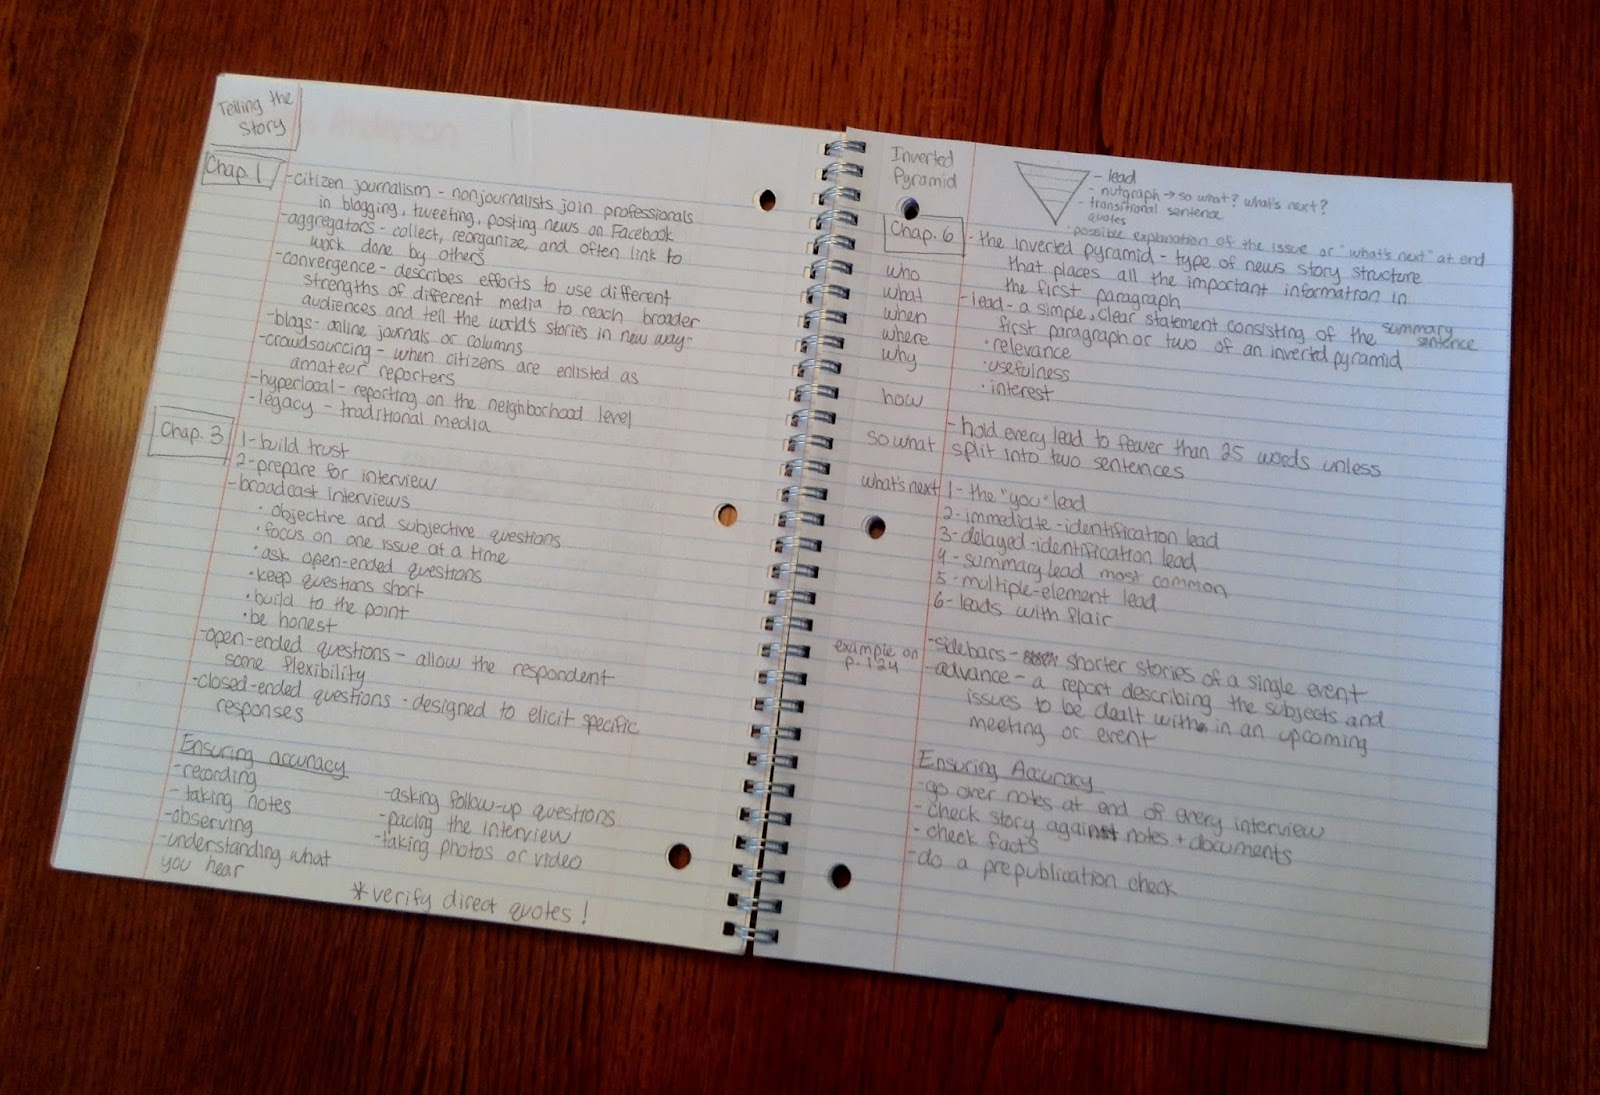 Telling the
Story
Chap. 1
-citizen journalism - nonjournalists join professionals
in blogging, tweeting, posting news on Facebook
-aggregators - collect, reorganize, and often link to
work done by others
-convergence - describes efforts to use different
strengths of different media to reach broader
audiences and tell the world's stories in new way-
-blogs - online journals or columns
-crowdsourcing - when citizens are enlisted as
amateur reporters
-hyperlocal - reporting on the neighborhood level
-legacy - traditional media
Chap. 3
1-build trust
2-prepare for interview
-broadcast interviews
• objective and subjective questions
• focus on one issue at a time
• ask open-ended questions
• keep questions short
• build to the point
• be honest
-open-ended questions - allow the respondent
some flexibility
-closed-ended questions - designed to elicit specific
responses
Ensuring accuracy
-recording
- taking notes
-observing
-understanding what
you hear
-asking follow-up questions
-pacing the interview
-taking photos or video
*verify direct quotes!
Inverted
Pyramid
- lead
- nutgraph → so what? what's next?
- transitional sentence
quotes
-possible explanation of the issue or "what's next" at end
Chap. 6
-the inverted pyramid - type of news story structure
that places all the important information in
the first paragraph
-lead - a simple, clear statement consisting of the summary sentence
first paragraph or two of an inverted pyramid
• relevance
• usefulness
• interest
who
what
when
where
why
how
so what
what's next
-hold every lead to fewer than 25 words unless
split into two sentences
1-the "you" lead
2-immediate-identification lead
3-delayed-identification lead
4-summary lead most common
5-multiple-element lead
6-leads with flair
example on
p. 124
-sidebars - shorter stories of a single event
-advance - a report describing the subjects and
issues to be dealt with in an upcoming
meeting or event
Ensuring Accuracy
-go over notes at end of every interview
-check story against notes + documents
-check facts
-do a prepublication check